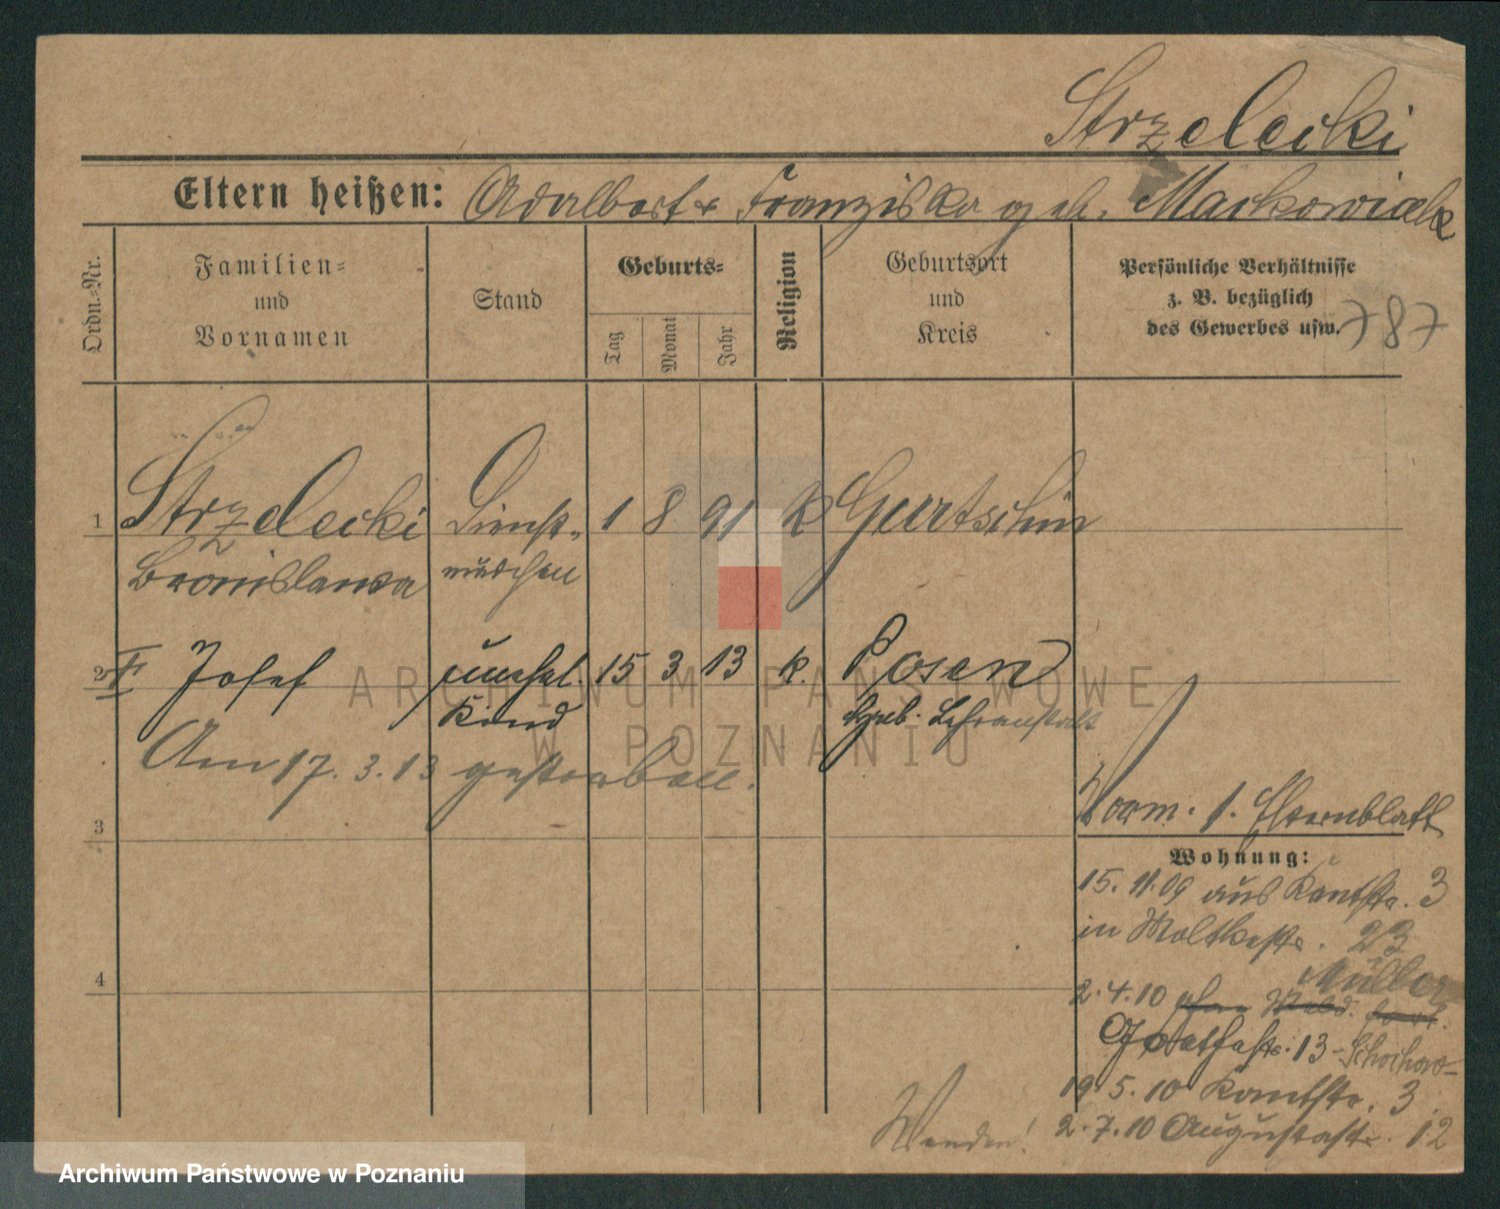 Strzelecki
Eltern heißen: Adalbert & Franziska geb. Mackowiak
Ordn.-Nr.
Familien-
und
Vornamen
Stand
Geburts-
Tag
Monat
Jahr
Religion
Geburtsort
und
Kreis
Persönliche Verhältnisse
z. B. bezüglich
des Gewerbes usw.
787
1 Strzelecki Dienst- 1 8 91 K Gurtschin
Bronislawa mädchen
2 Josef unehel. 15 3 13 k. Posen
Kind Heb. Lehranstalt
Am 17. 3. 13 gestorben.
3
Vorm. 1. Elternblatt
Wohnung:
15. 11. 09 aus Kantstr. 3
in Moltkestr. 23
Müller
4
2. 4. 10 ohne Meld. fort.
Goethestr. 13
19. 5. 10 Kantstr. 3.
2. 7. 10 Augustastr. 12
Wenden!
ARCHIWUM PAŃSTWOWE
W POZNANIU
Archiwum Państwowe w Poznaniu